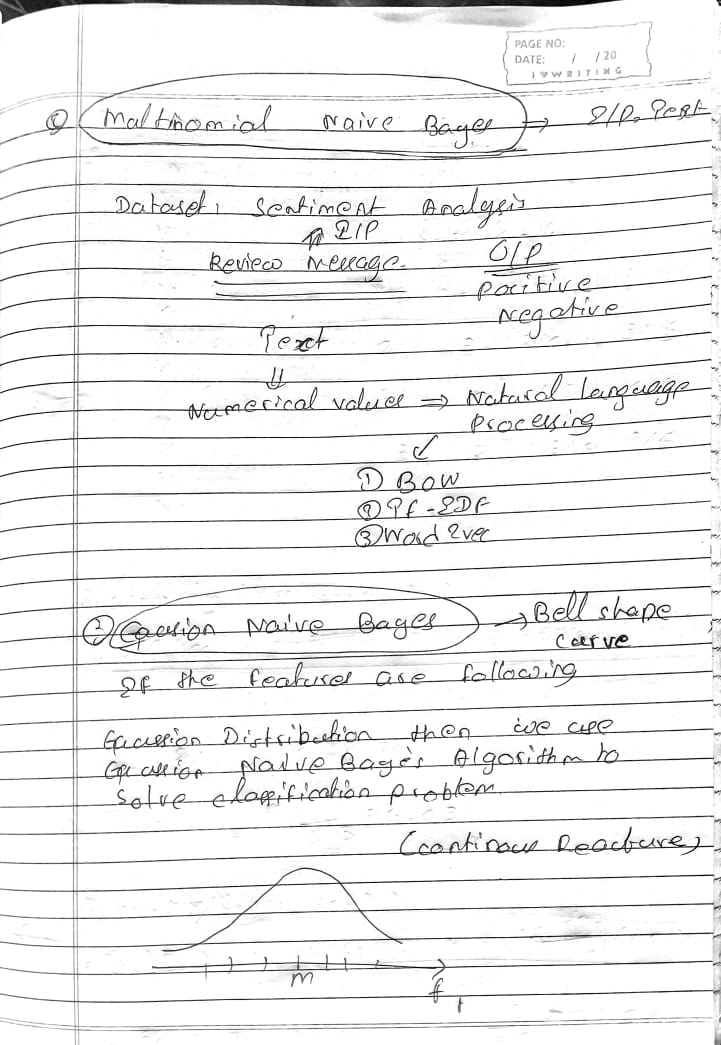 PAGE NO:
DATE: / /20
I ♥ WRITING
① Multinomial Naive Bayes → I/P: Text
Dataset: Sentiment Analysis
⇑ I/P
Review Message. O/P
Positive
Negative
Text
⇓
Numerical values ⇒ Natural Language
Processing
↙
① BOW
② Tf-IDF
③ Word2vec
② Gaussian Naive Bayes → Bell shape
curve
If the features are following
Gaussian Distribution then we use
Gaussian Naive Baye's Algorithm to
Solve classification problem.
(continous
m
f1